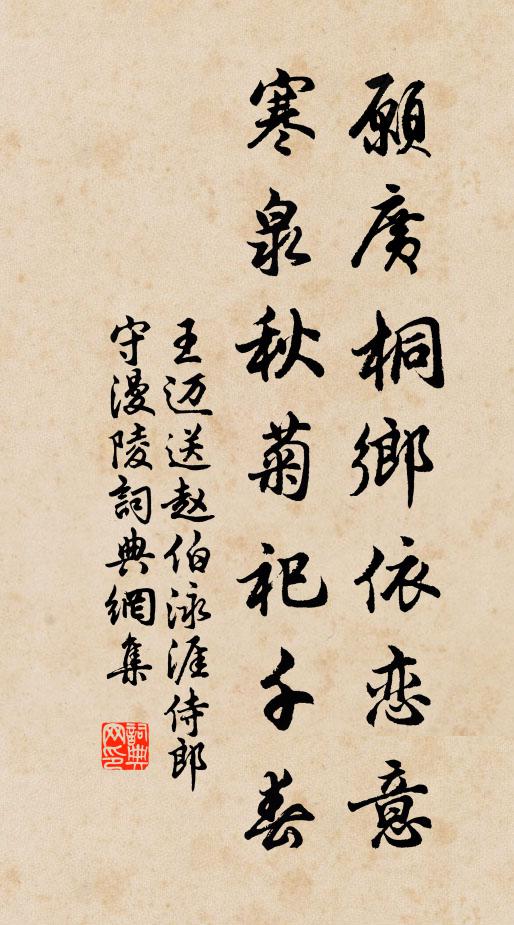 願廣桐鄉依恋意
寒泉秋菊祀千春
王迈送赵伯泳涯侍郎
守漫陵詞典網集
詞典网印